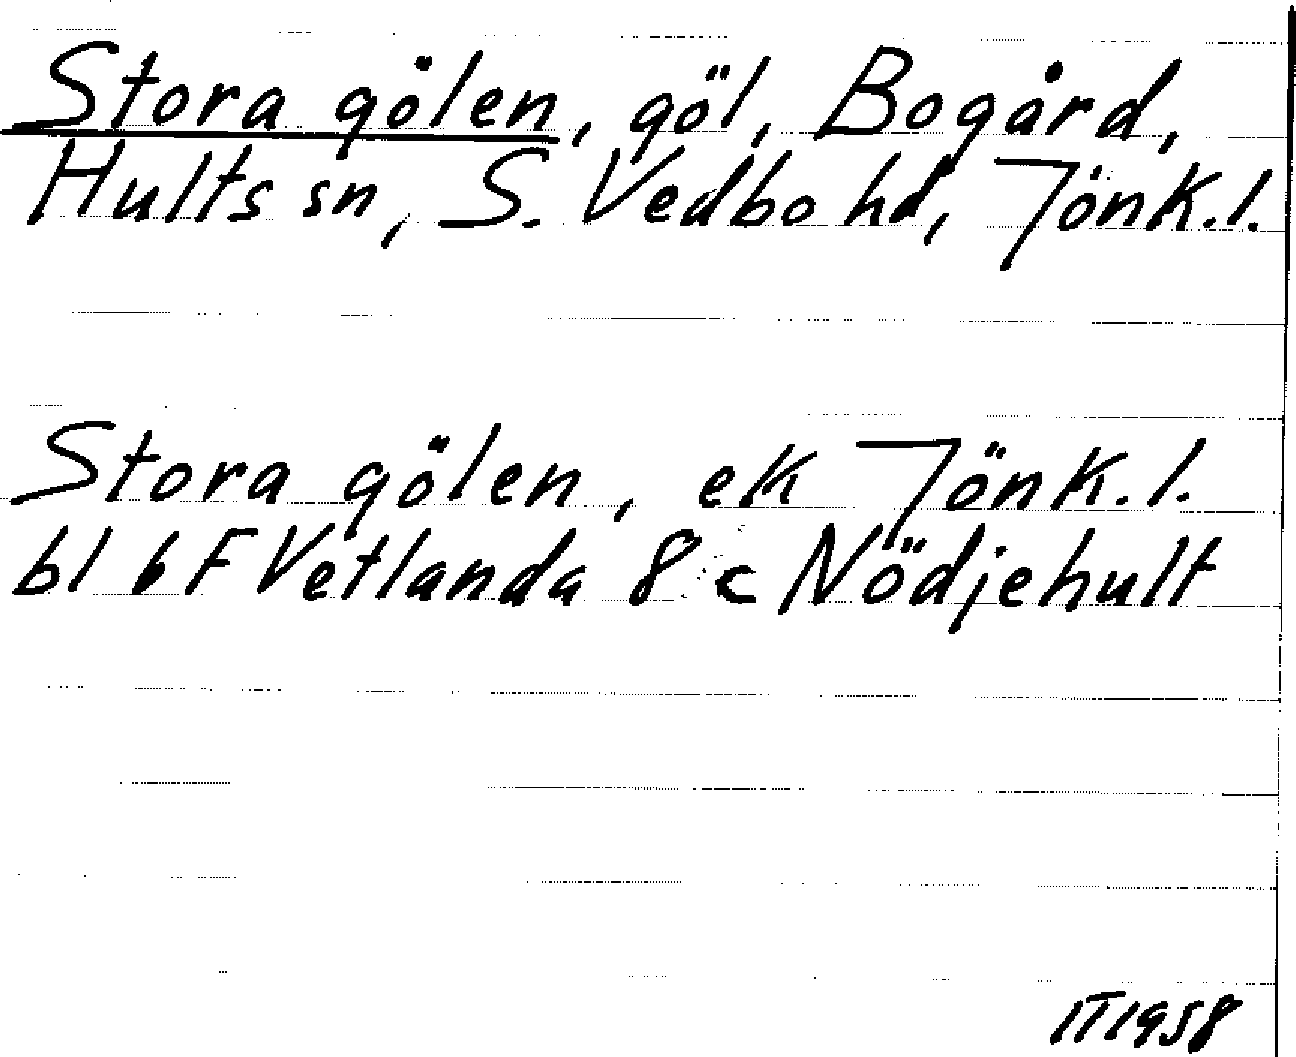 Stora gölen, göl, Bogård,
Hults sn, S. Vedbo hd, Jönk.l.
Stora gölen, ek Jönk.l.
bl 6 F Vetlanda 8 c Nödjehult
IT1958